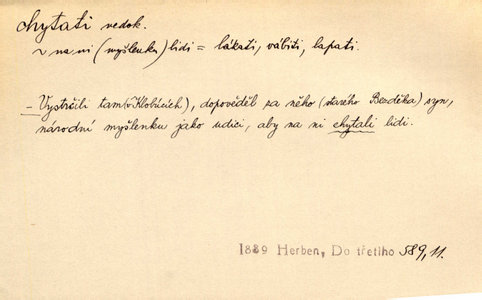 chytati nedok.
~ na ni (myšlenku) lidi = lákati, vábiti, lapati.
– Vystrčili tam (v Klobúcích), dopověděl za něho (starého Bezděka) syn,
národní myšlenku jako udici, aby na ni chytali lidi.
1889 Herben, Do třetího 589, 11.